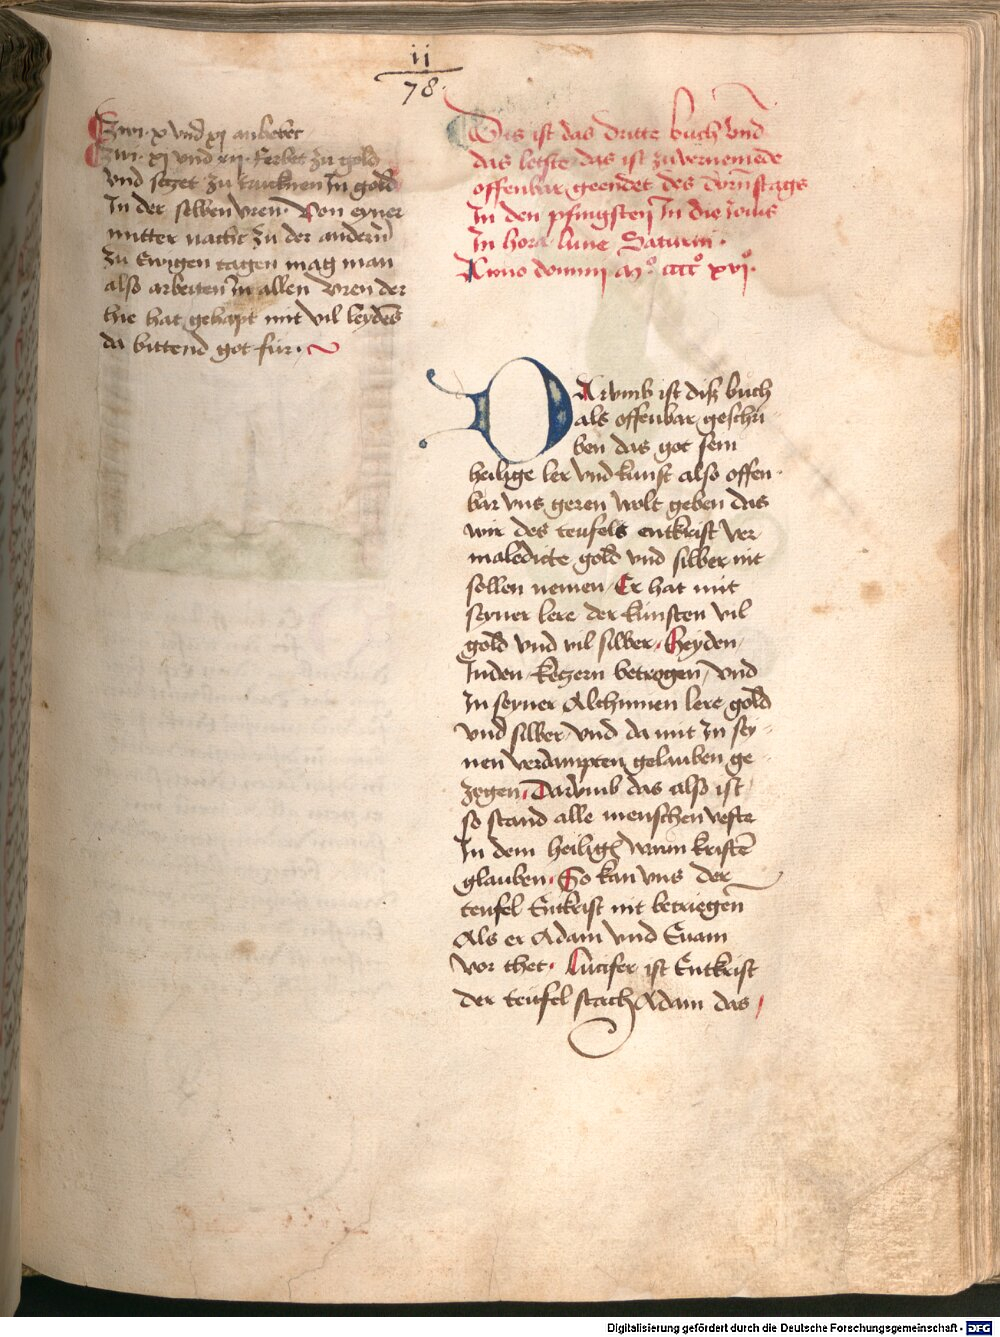 ii
78.
Zwi. x vnd xj anbeter
Zwi. xj vnd xij. ferbet zu gold
vnd setzet zu trucknen Jn gold
Jn der selben vren. Von eyner
mitter nacht zu der andern
zu Ewigen tagen mag man
also arbeiten Jn allen vren der
hie hat gehapt mit vil leydes
da bittend got für.
Das ist das dritte buch vnd
das letste das ist zuvernemede
offenbar geendet des durnstags
Jn den pfingsten Jn die Jouis
Jn hora lune Saturni.
Anno domini mº ccccº xvjº.
DArvmb ist diß buch
als offenbar geschri
ben das got sein
heilige ler vnd kunst also offen
bar vns geren wolt geben das
wir des teufels entkrist ver
maledicte gold vnd silber nit
sollen nemen Er hat mit
seyner lere der kunsten vil
gold vnd vil silber. Heyden
Juden ketzern betrogen vnd
Jn seyner Alchimien lere gold
vnd silber vnd da mit Jn sey
nen verdampten gelauben ge
zogen. Darvmb das also ist
so stand alle menschen veste
Jn dem heilige warn kristē
glauben. So kan vns der
teufel Entkrist nit betriegen
Als er Adam vnd Euam
vor thet. Lucifer ist Entkrist
der teufel stach Adam das
Digitalisierung gefördert durch die Deutsche Forschungsgemeinschaft - DFG